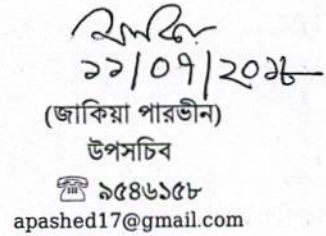 ১১/০৭/২০১৮
(জাকিয়া পারভীন)
উপসচিব
☎ ৯৫৪৬১৫৮
apashed17@gmail.com